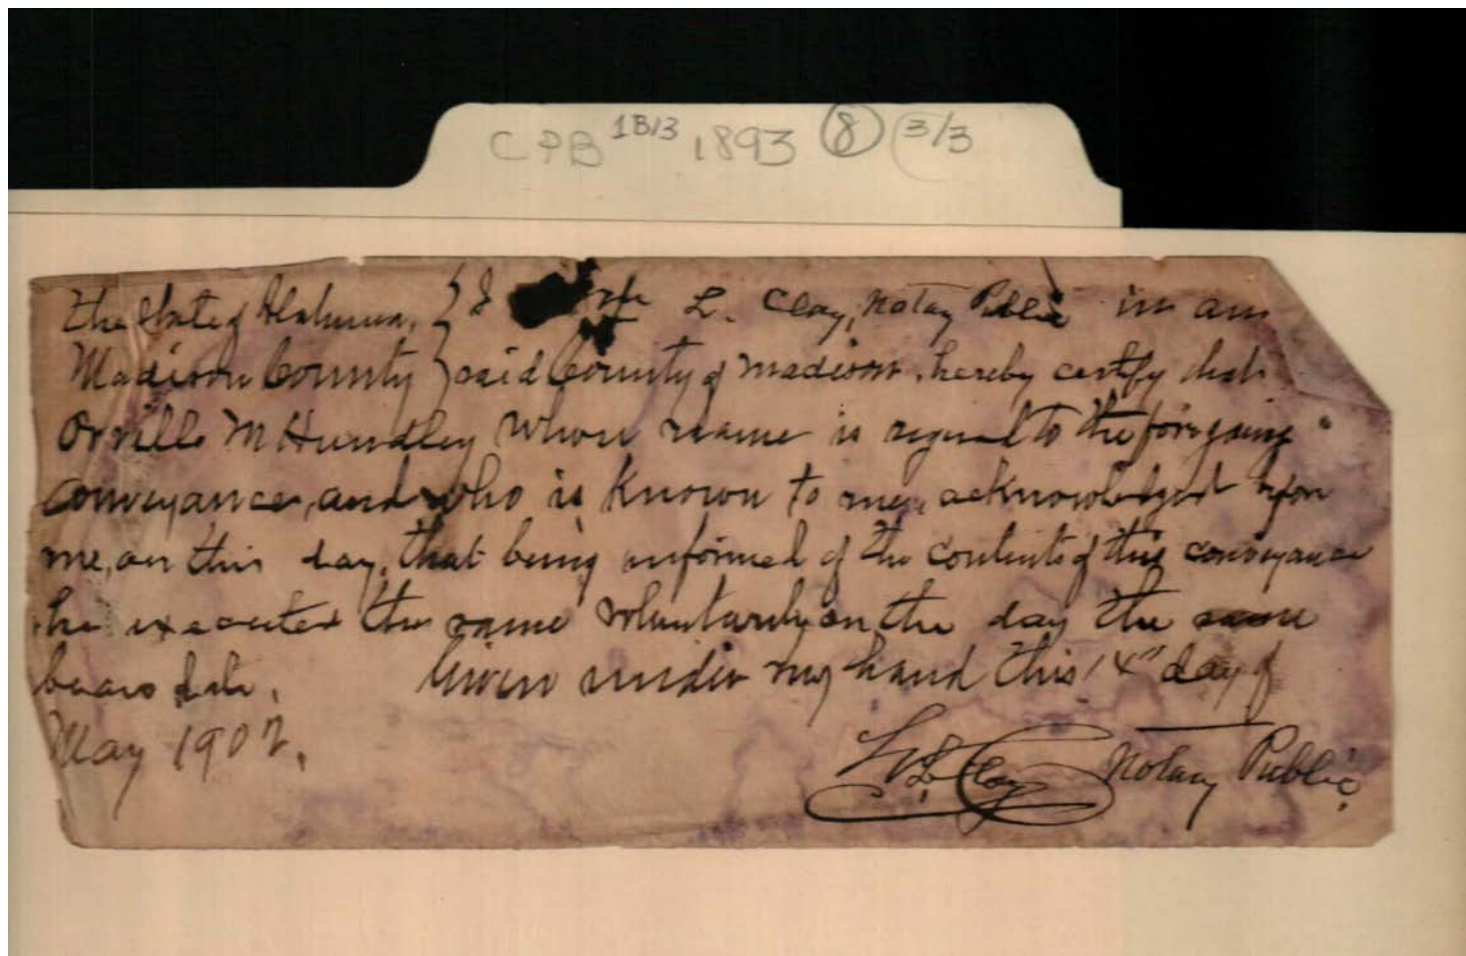 CPB 1B13 1893 8 3/3
The State of Alabama, } I L. Clay, Notary Public in and
Madison County } said County of Madison, hereby certify that
Orville M Hundley whose name is signed to the foregoing
conveyance, and who is known to me, acknowledged before
me, on this day, that being informed of the contents of this conveyance
he executed the same voluntarily on the day the same
bears date. Given under my hand this 14" day of
May 1902.
L. Clay Notary Public.